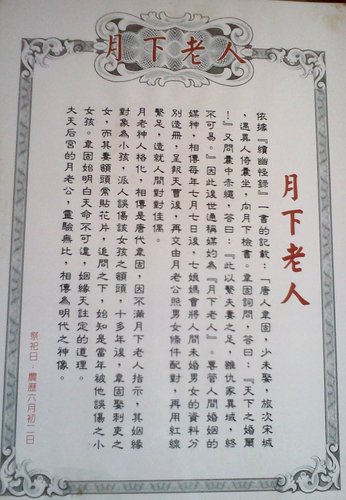 月下老人
月下老人
依據『續幽怪錄』一書的記載：「唐人韋固，少未娶，旅次宋城
，遇異人倚囊坐，向月下檢書。韋固詞問，答曰：『天下之婚爾
！』又問囊中赤繩，答曰：『此以繫夫妻之足，雖仇家異域，終
不可易。』因此後世通稱媒妁為『月下老人』。專管人間婚姻的
媒神，相傳每年七月七日後，七娘媽會將人間未婚男女的資料分
別造冊，呈報天曹後，再交由月老公照男女條件配對，再用紅線
繫足，造就人間對對佳偶。
月老神人格化，相傳是唐代韋固，因不滿月下老人指示，其姻緣
對象為小孩，派人誤傷該女孩之額頭，十多年後，韋固娶刺吏之
女，而其妻額頭常貼花片，追問之下，始知是當年被他誤傷之小
女孩。韋固始明白天命不可違，姻緣天註定的道理。
大天后宮的月老公，靈驗無比，相傳為明代之神像。
祭祀日：農歷六月初二日